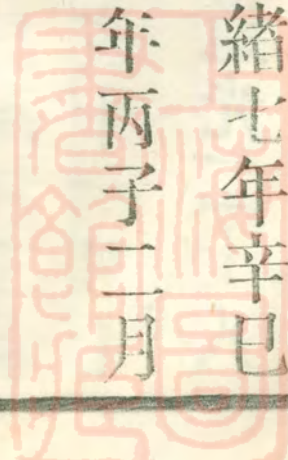 緒七年辛巳
年丙子二月